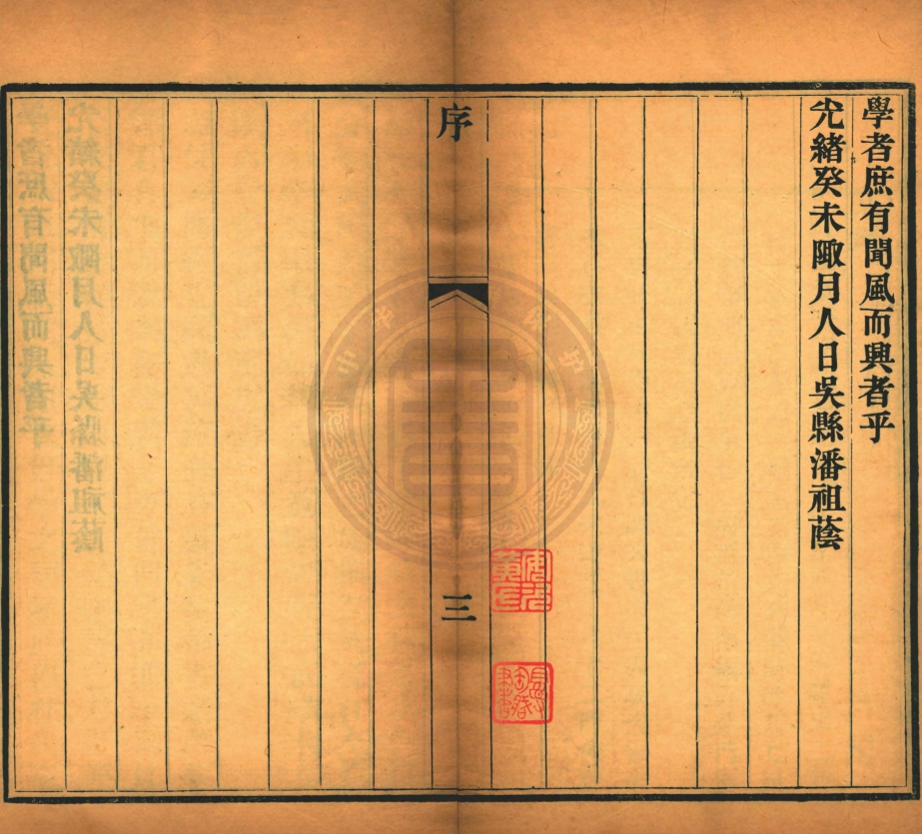 學者庶有聞風而興者乎
光緒癸未陬月人日吳縣潘祖蔭
序
三